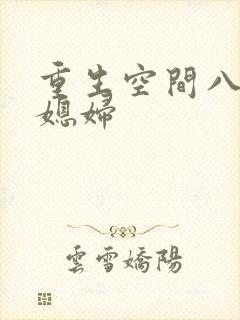 重生空間八
媳婦
雲雪嬌陽